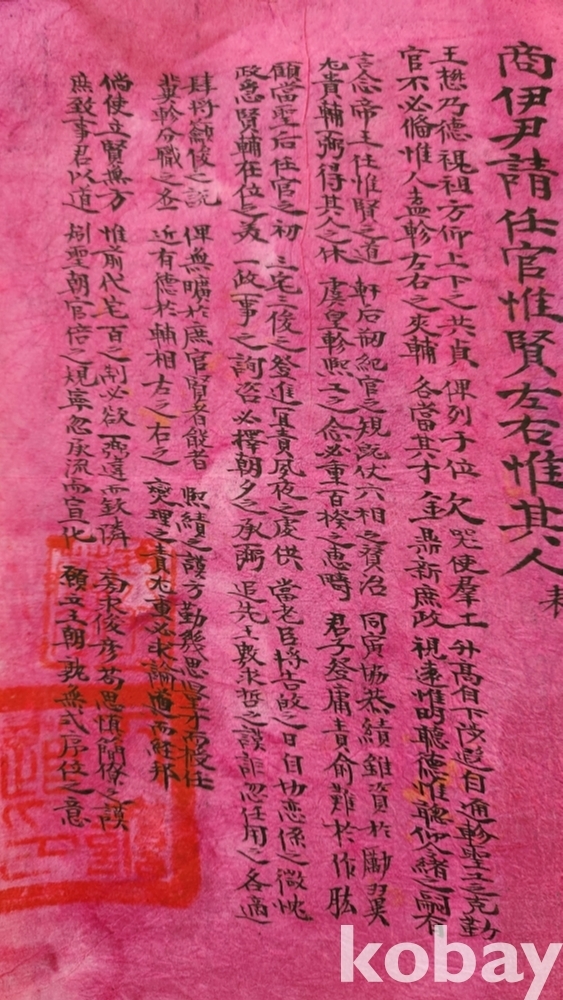 商伊尹請任官惟賢左右惟其人
王懋乃德視祖方仰上下之共貞 俾列于位欠 使羣工升高自下陟遐自邇軫聖王之克勤
官不必備惟人盍軫左右之夾輔 各當其才 鼎新庶政 視遠惟明聽德惟聰仰緒之嗣有
言念帝王任惟賢之道 軒后初紀官之規旣仗六相之贊治 同寅協恭績雖資於勵翼
尤貴輔弼得其人之休 虞皇軫熙工之念必重百揆之惠疇 君子登庸責俞難於作肱
顧當聖后任官之初 三宅三俊之登進宜責夙夜之虔供 當老臣將告政之日自切恋係之微忱
政急賢輔在位之美 一政一事之詢咨必擇朝夕之承弼 追先王敷求哲之謨詎忽任用之各適
肆將俊之説 俾無曠於庶官賢者能者 熙績之謨方勤幾思量才而授任
冀軫分職之 近有德於輔相左之右之 燮理之責尤重必求論道而經邦
倘使立賢無方 惟前代宅百之制必欲一達而致隣 旁求俊彥苟思慎簡僚之謨
庶致事君以道 烱聖朝官倍之規寧忽承流而宣化 願立王朝孰無式序位之意
kobay